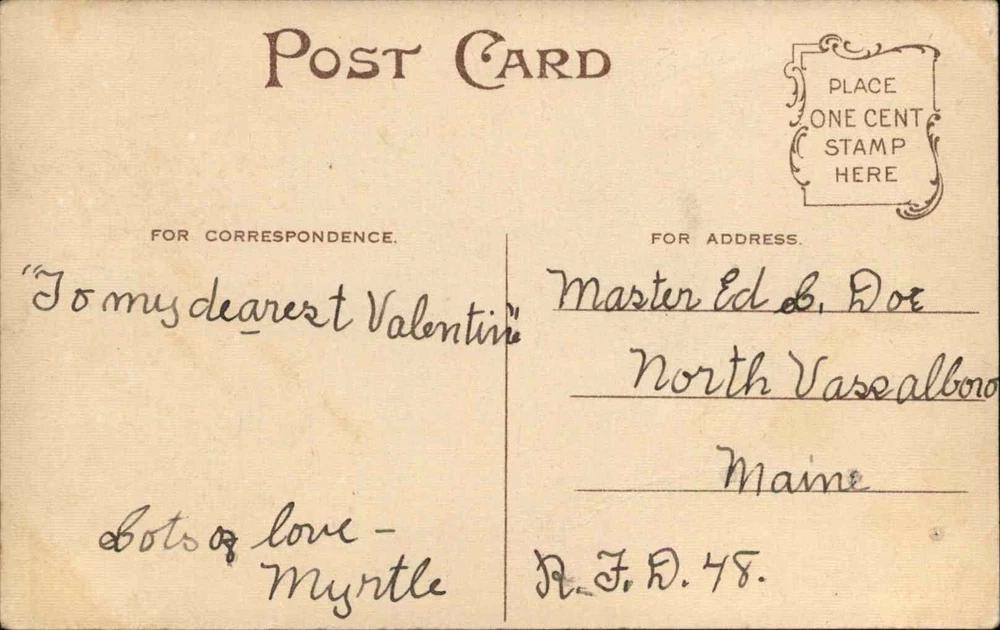 POST CARD
PLACE
ONE CENT
STAMP
HERE
FOR CORRESPONDENCE.
"To my dearest Valentine"
Lots of love -
Myrtle
FOR ADDRESS.
Master Ed L. Doe
North Vassalboro
Maine
R. F. D. 48.